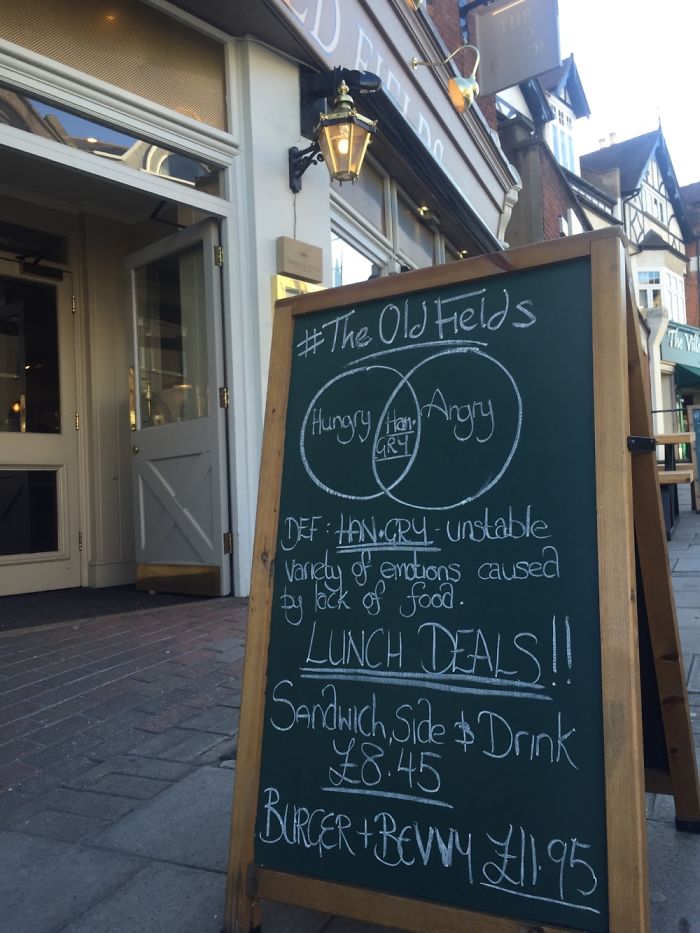 LD FIELDS
THE
OLD
FIELDS
The Vill
#The Old Fields
Hungry
HAN•
GRY
Angry
DEF: HAN•GRY - unstable
variety of emotions caused
by lack of food.
LUNCH DEALS!!
Sandwich, Side & Drink
£8.45
BURGER + BEVVY £11.95